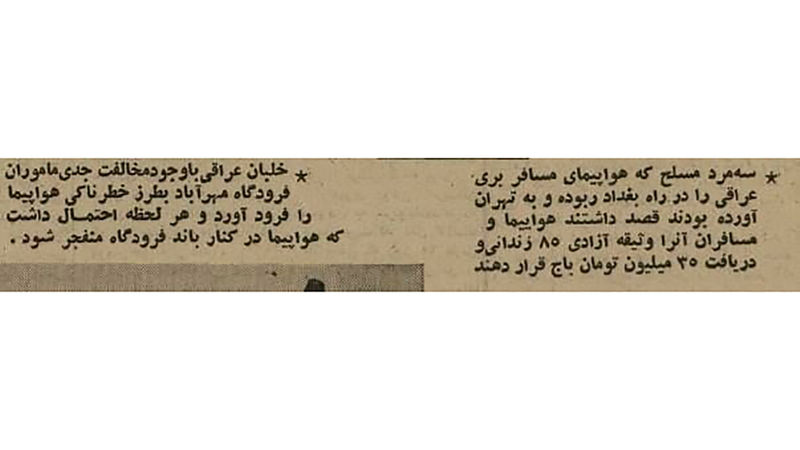 * سه‌مرد مسلح که هواپیمای مسافر بری
عراقی را در راه بغداد ربوده و به تهران
آورده بودند قصد داشتند هواپیما و
مسافران آنرا وثیقه آزادی ۸۵ زندانی‌و
دریافت ۳۵ میلیون تومان باج قرار دهند
* خلبان عراقی‌باوجودمخالفت جدی‌ماموران
فرودگاه مهرآباد بطرز خطرناکی هواپیما
را فرود آورد و هر لحظه احتمال داشت
که هواپیما در کنار باند فرودگاه منفجر شود .